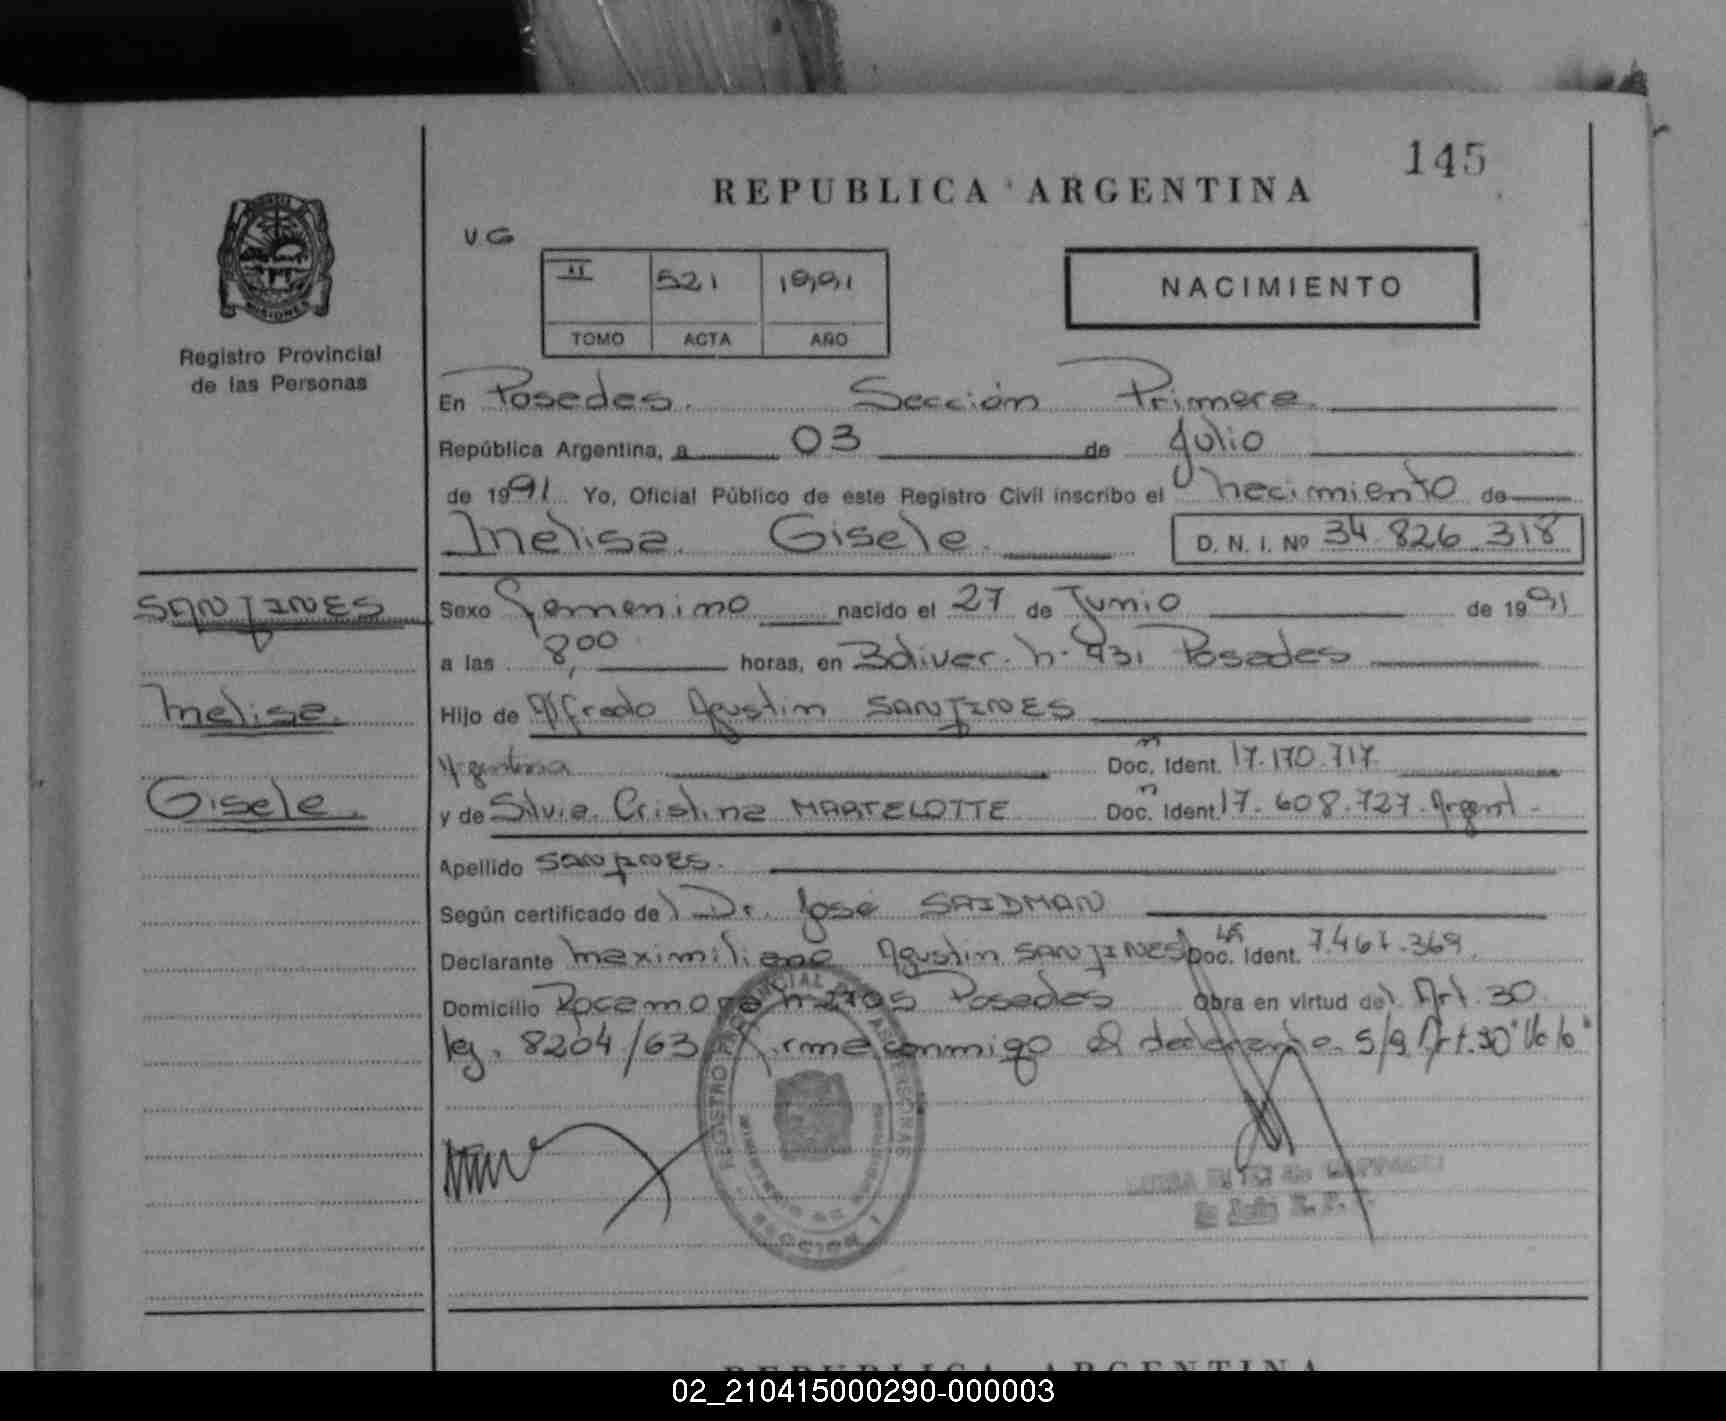 145
REPUBLICA ARGENTINA
VG
II 521 1991
TOMO ACTA AÑO
NACIMIENTO
MISIONES
Registro Provincial
de las Personas
En Posadas. Sección Primera
República Argentina, a 03 de Julio
de 1991 Yo, Oficial Público de este Registro Civil inscribo el nacimiento de
Melisa Gisele D. N. I. Nº 34.826.318
SANJINES
Melisa
Gisele
Sexo Femenino nacido el 27 de Junio de 1991
a las 8,00 horas, en Bolivar n. 431 Posadas
Hijo de Alfredo Agustin SANJINES
Argentina Doc. Ident. 17.170.717
y de Silvia Cristina MARTELOTTE Doc. Ident. 17.608.727. Argent.
Apellido SANJINES.
Según certificado del Dr. José SAIDMAN
Declarante Maximiliano Agustin SANJINES Doc. Ident. 7.467.369
Domicilio Rocamora Posadas Obra en virtud del Art. 30
ley. 8204/63 Firma conmigo el declarante. S/g Art. 30
REGISTRO PROVINCIAL DE LAS PERSONAS
REPUBLICA ARGENTINA
02_210415000290-000003